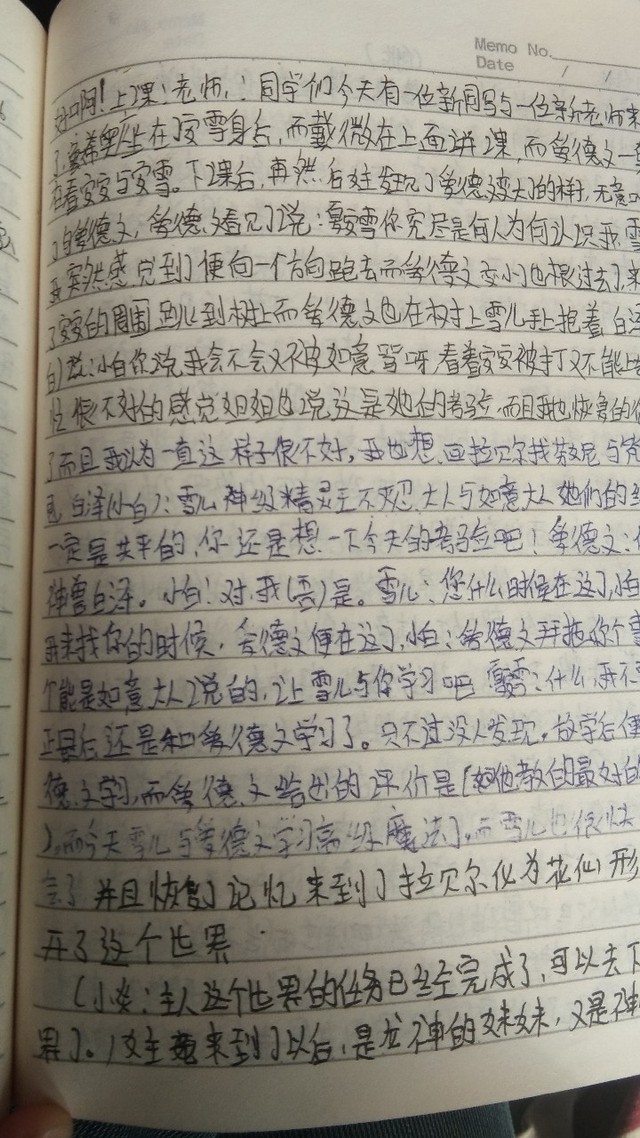 Memo No.
Date / /
好啊!上课:老师:同学们今天有一位新同学与一位新老师来
了,坐在了安雪身后,而戴微在上面讲课,而鲁德文一
在看安安与安雪。下课后,再然后女主发现了鲁德文变大了的样子,无意
了自鲁德文,鲁德文看见了说:安雪你究尽是何人为何认识我,雪
突然感觉到了便向一个方向跑去而鲁德文变小也根过去了,来
了安安的周围到树上而鲁德文也在树上雪儿手上抱着白泽
白)说:小白你说我会不会又被如意骂呀,看着安安被打又不能上
忙很不好的感觉姐姐也说这是她的考验,而且我也恢复的
了而且我认为一直这样子很不好,我也想回拉贝尔找
白泽(小白):雪儿神级精灵王不灭忍大人与如意大人她们的
一定是共平的,你还是想一下今天的考验吧!鲁德文:
神兽白泽。小白:对,我(吾)是。雪儿:您什么时候在这了,小白
我来找你的时候,鲁德文便在这了,小白:鲁德文
能是如意大人说的,让雪儿与你学习吧 雪:什么,我不
最后还是和鲁德文学习了。只不过没人发现。放学后便
德文学习,而鲁德文给出的评价是[他教的最好的
)。而今天雪儿与鲁德文学习高级魔法了。而雪儿也很快
完了并且恢复了记忆来到了拉贝尔化为花仙形
开了这个世界
(小炎:主人这个世界的任务已经完成了,可以去下
界了。)女主来到了以后,是龙神的妹妹,又是神